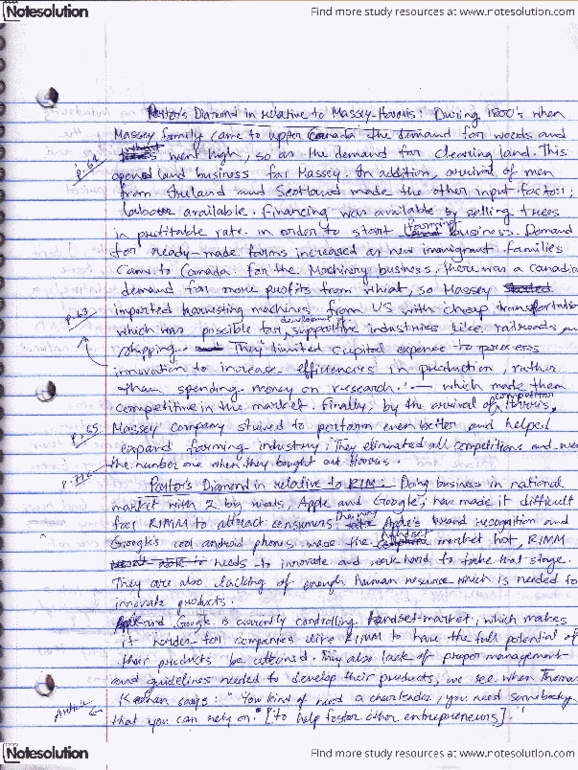 Notesolution
Find more study resources at www.notesolution.com
Porter's Diamond in relative to Massey-Harris: During 1800's when
Massey family came to upper Canada the demand for woods and
wheat went high, so as the demand for clearing land. This
p.61
opened land business for Massey. In addition, arrival of men
from Ireland and Scotland made the other input factor;
labour available. Financing was available by selling trees
in profitable rate in order to start farming business. Demand
for ready-made farms increased as new immigrant families
came to Canada. For the Machinery business, there was a Canadia
demand for more profits from wheat, so Massey started
p.63
imported harvesting machines from US with cheap transportatio
which was possible for development of supportive industries like railroads, an
shipping. They "limited capital expense to process
innovation to increase efficiencies in production, rather
than spending money on research." — which made them
competitive in the market. Finally, by the arrival of competition Harris,
Massey company strived to perform even better and helped
expand farming industry. They eliminated all competitions and
the number one when they bought out Harris.
Porter's Diamond in relative to RIM: Doing business in national
market with 2 big rivals, Apple and Google, has made it difficult
for RIMM to attract consumers. Apple's brand recognition and
Google's cool android phones made the handset market hot, RIMM
needs to innovate and work hard to take that stage.
They are also lacking of enough human resource which is needed to
innovate products.
Apple and Google is currently controlling handset market, which makes
it harder for companies like RIMM to have the full potential of
their products be attained. They also lack of proper management
and guidelines needed to develop their products, we see when Thomas
says: "You kind of need a cheerleader, you need somebody
that you can rely on." [to help foster other entrepreneurs]."
Notesolution
Find more study resources at www.notesolution.com